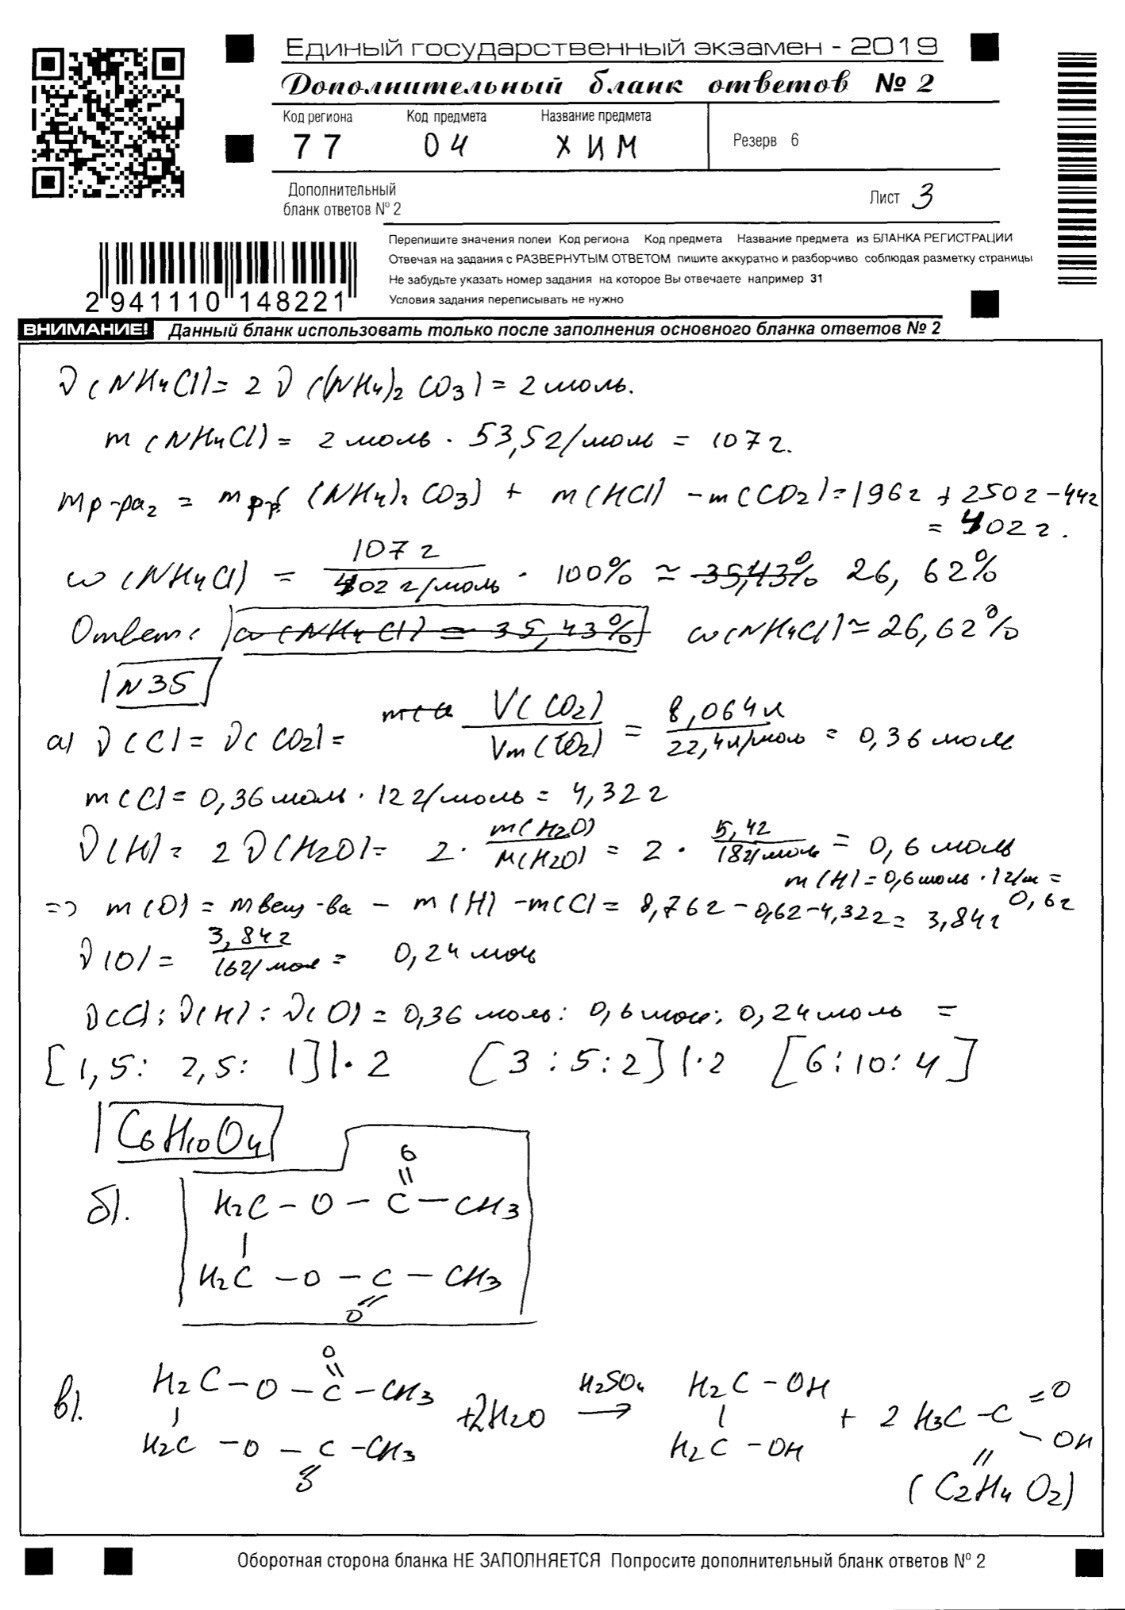 Единый государственный экзамен - 2019
Дополнительный бланк ответов № 2
Код региона Код предмета Название предмета
Резерв 6
77 04 ХИМ
Дополнительный
бланк ответов № 2
Лист 3
Перепишите значения полей Код региона Код предмета Название предмета из БЛАНКА РЕГИСТРАЦИИ
Отвечая на задания с РАЗВЕРНУТЫМ ОТВЕТОМ пишите аккуратно и разборчиво соблюдая разметку страницы
Не забудьте указать номер задания на которое Вы отвечаете например 31
Условия задания переписывать не нужно
2 941110 148221
ВНИМАНИЕ! Данный бланк использовать только после заполнения основного бланка ответов № 2
ν(NH4Cl) = 2 ν((NH4)2 CO3) = 2 моль.
m (NH4Cl) = 2 моль · 53,5 г/моль = 107 г.
m р-ра2 = m р-р (NH4)2 CO3) + m(HCl) - m(CO2) = 196 г + 250 г - 44 г
= 402 г.
ω (NH4Cl) = 107 г / 402 г/моль · 100% ≈ 35,43% 26,62%
Ответ: ω(NH4Cl) = 35,43% ω(NH4Cl) ≈ 26,62%
N35
а) ν(C) = ν(CO2) = V(CO2) / Vm(CO2) = 8,064 л / 22,4 л/моль = 0,36 моль
m(C) = 0,36 моль · 12 г/моль = 4,32 г
ν(H) = 2 ν(H2O) = 2 · m(H2O) / M(H2O) = 2 · 5,4г / 18 г/моль = 0,6 моль
m(H) = 0,6 моль · 1 г/м = 0,6 г
=> m(O) = m вещ-ва - m(H) - m(C) = 8,76 г - 0,6 г - 4,32 г = 3,84 г
ν(O) = 3,84 г / 16 г/моль = 0,24 моль
ν(C) : ν(H) : ν(O) = 0,36 моль : 0,6 моль : 0,24 моль =
[1,5 : 2,5 : 1] | · 2 [3 : 5 : 2] | · 2 [6 : 10 : 4]
C6H10O4
O
б). H2C - O - C - CH3
H2C - O - C - CH3
O
O
в). H2C - O - C - CH3 +2H2O H2SO4 → H2C - OH + 2 H3C - C = O
H2C - O - C - CH3 H2C - OH - OH
O
(C2H4O2)
Оборотная сторона бланка НЕ ЗАПОЛНЯЕТСЯ Попросите дополнительный бланк ответов № 2